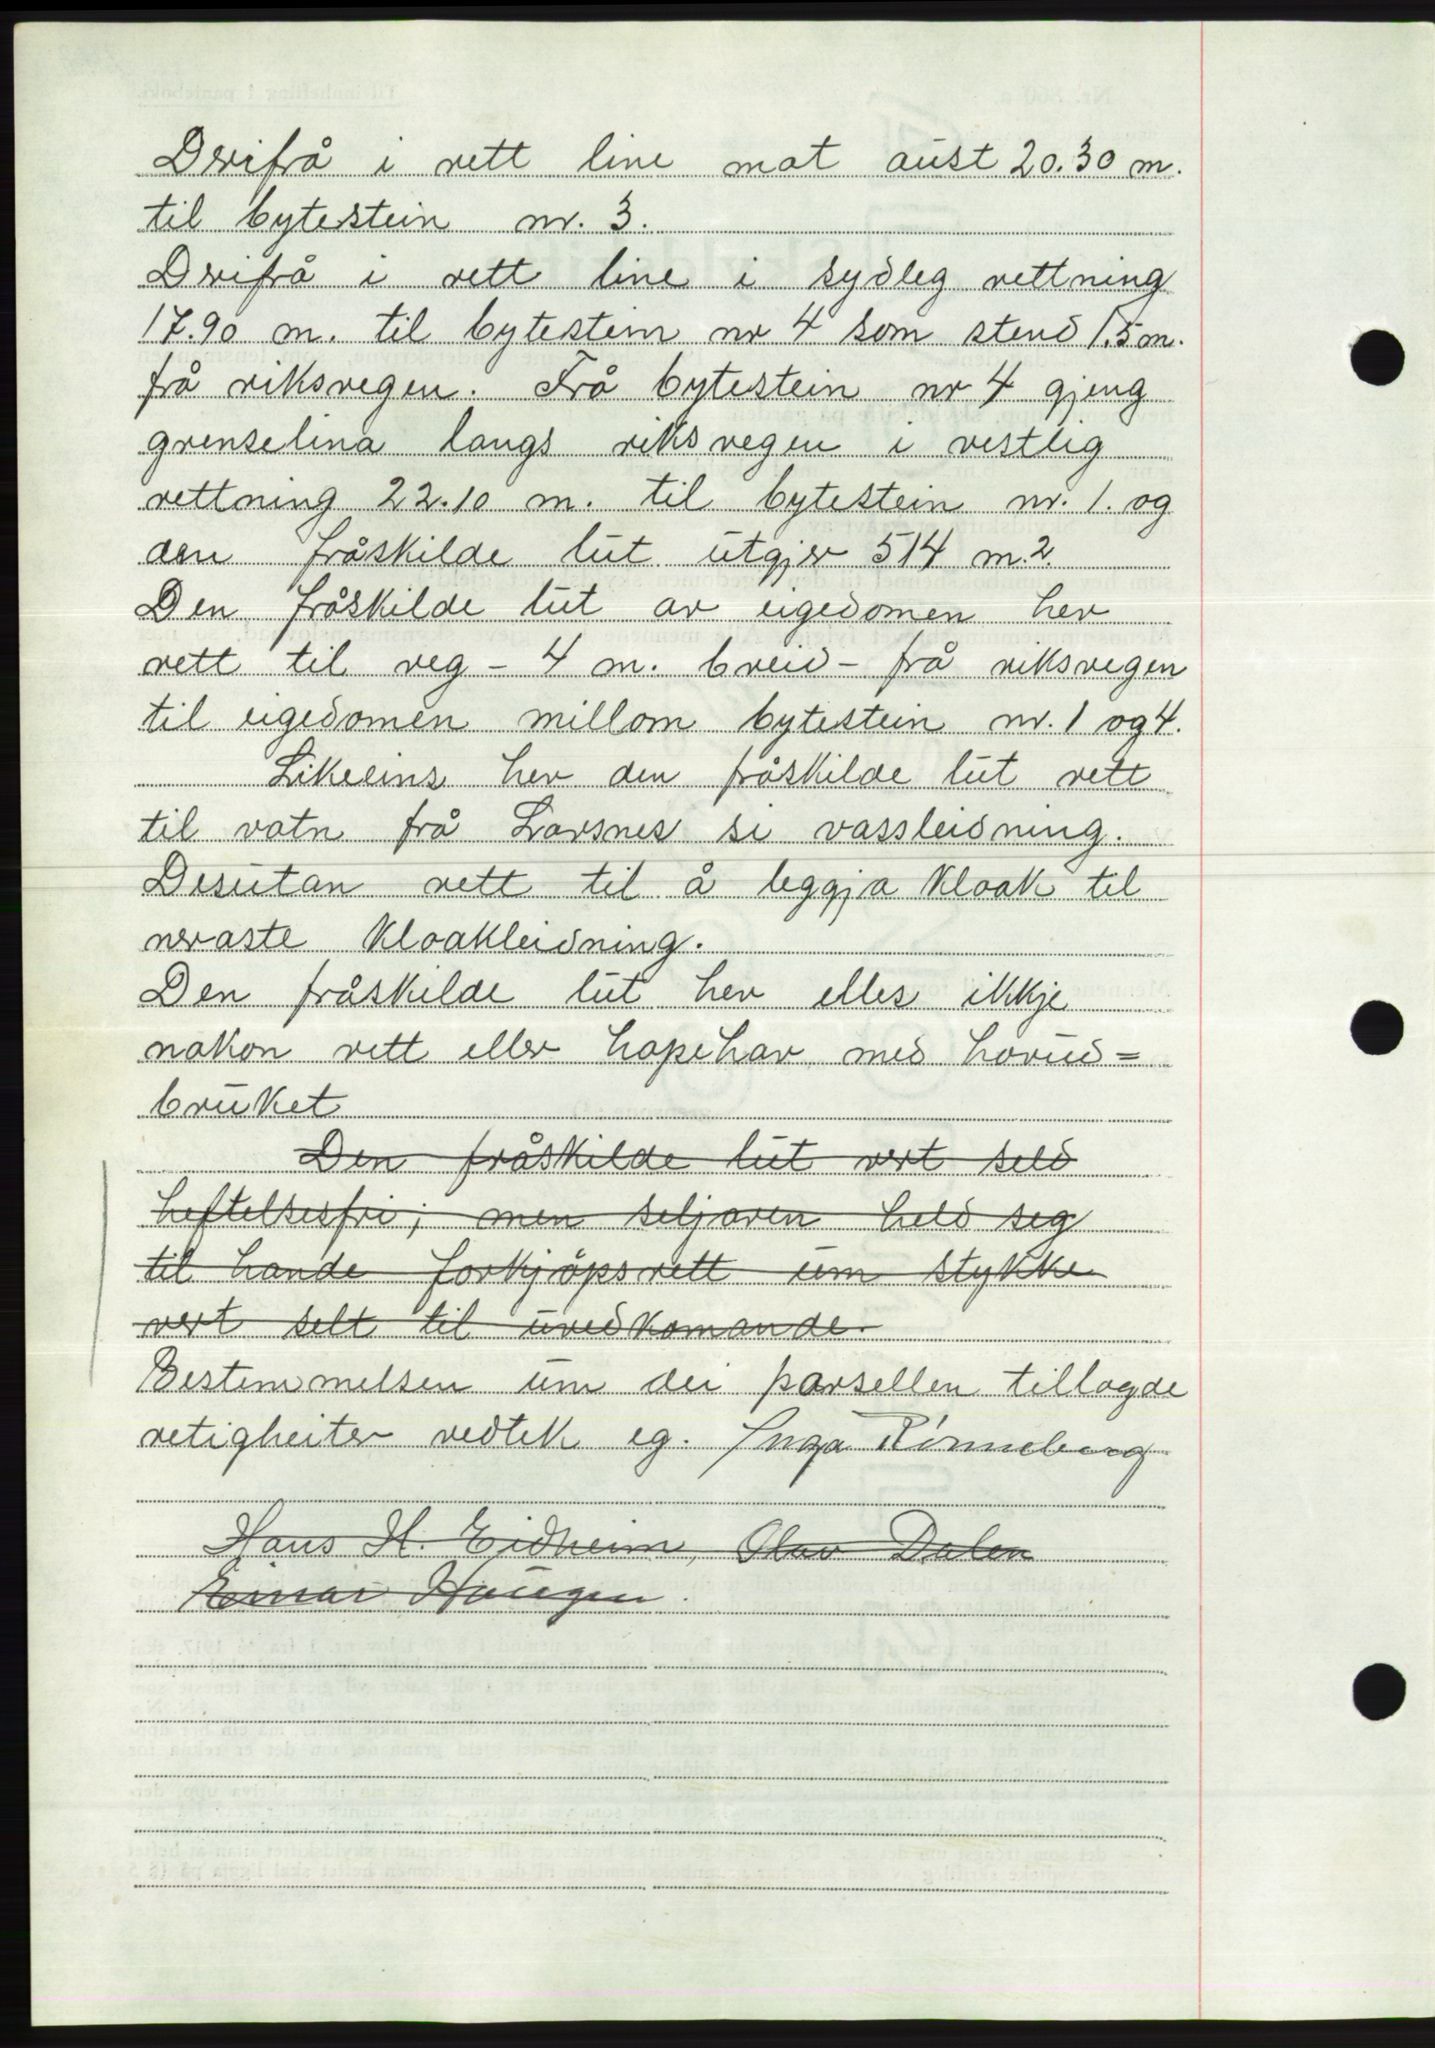 Derifrå i rett line mot aust 20.30 m.
til bytestein nr. 3.
Derifrå i rett line i sydleg rettning
17.90 m. til bytestein nr 4 som stend 1.5 m.
frå riksvegen. Frå bytestein nr 4 gjeng
grenselina langs riksvegen i vestlig
rettning 22.10 m. til bytestein nr. 1. og
den fråskilde lut utgjer 514 m.2.
Den fråskilde lut av eigedomen hev
rett til veg - 4 m. breid - frå riksvegen
til eigedomen millom bytestein nr. 1 og 4.
Likeeins hev den fråskilde lut rett
til vatn frå Larsnes si vassleidning.
Desutan rett til å leggja kloak til
næraste kloakleidning.
Den fråskilde lut hev elles ikkje
nokon rett eller hopehav med hovud=
bruket
Den fråskilde lut vert seld
heftelsesfri; men seljaren held seg
til hande forkjöpsrett um stykke
vert selt til uvedkomande.
Bestemmelsen um dei parsellen tillagde
retigheiter vedtek eg. Inga Rönneberg
Hans H. Eidheim, Olav Dalen
Einar Haugen.